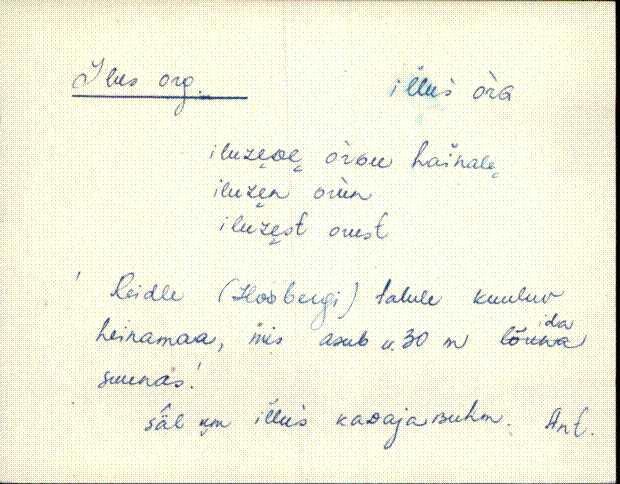 Ilus org. illus òrG
iluzeDe òrGu hainale
iluzen orun
iluzest orust
' Reidle (Hosbergi) talule kuuluv
heinamaa, mis asub u. 30 m ida
suunas!
säl um illus kaDajaBuhm. Ant.